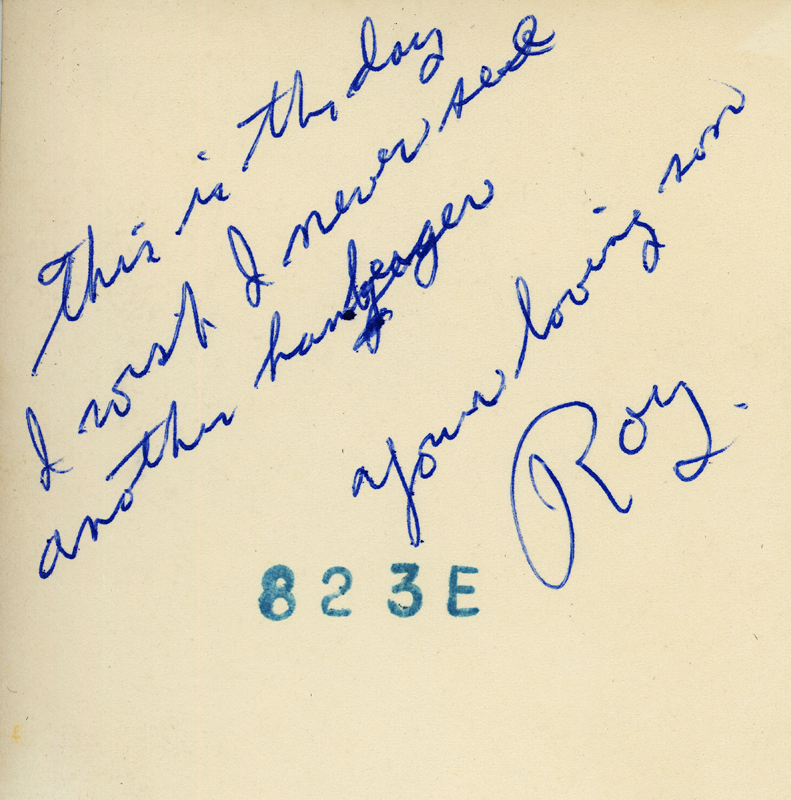 This is the day
I wish I never see
another hamberger
your loving son
Roy.
823E